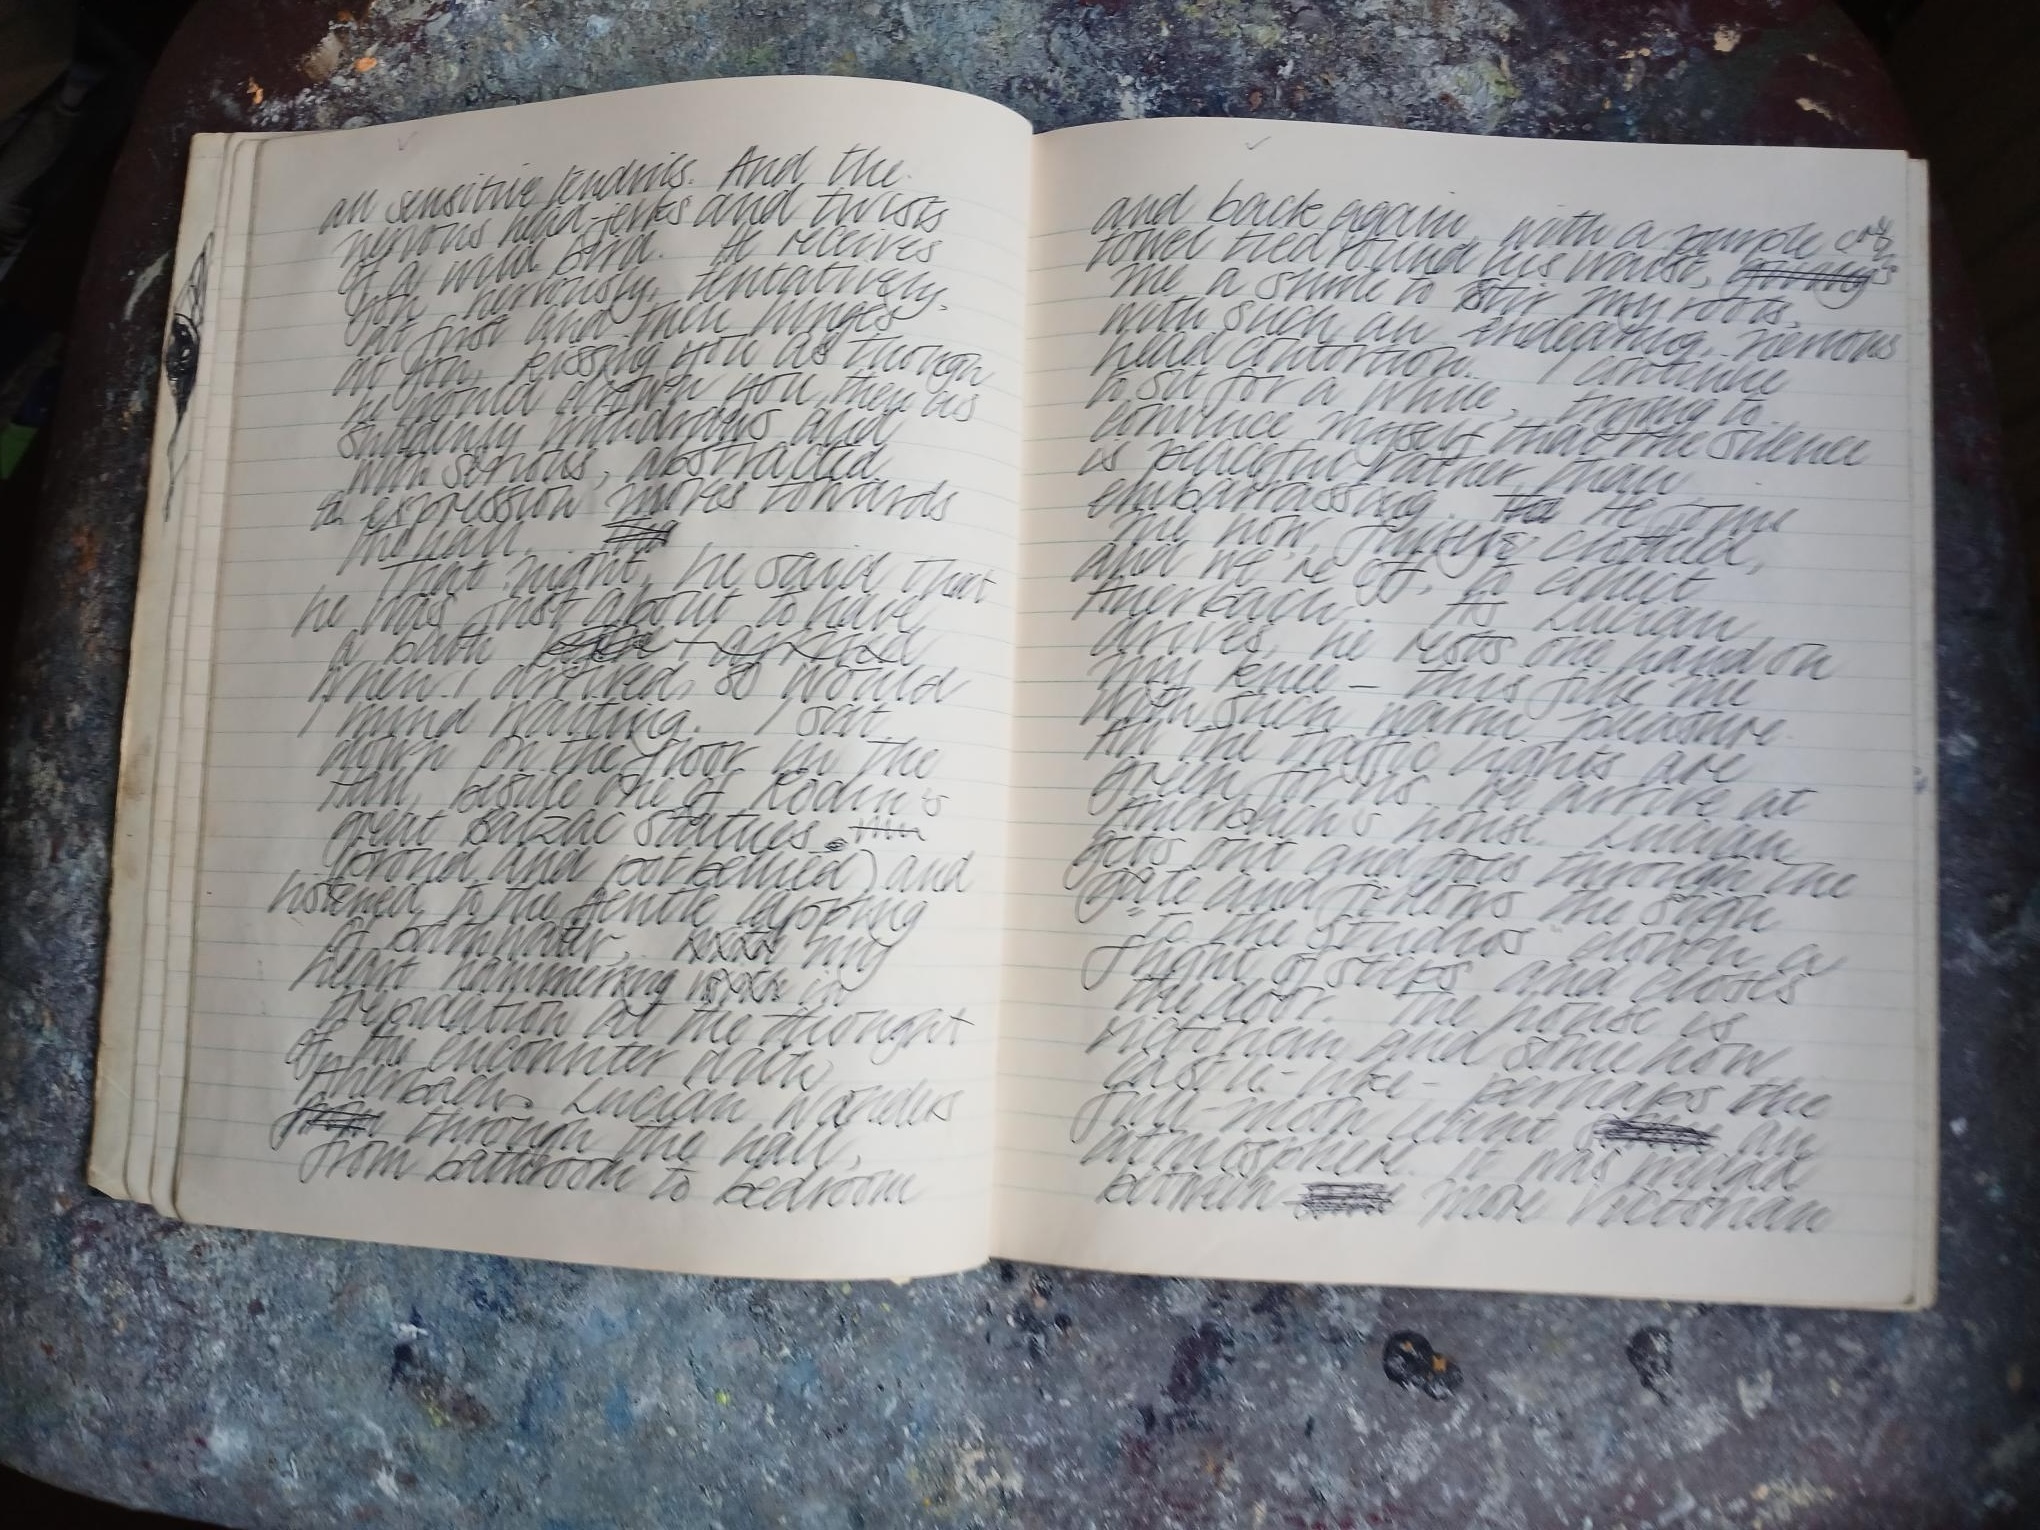 all sensitive tendrils. And the
nervous head-jerks and twists
of a wild bird. He receives
you nervously, tentatively,
at first and then lunges
at you, kissing you as though
he would drown you, then as
suddenly withdraws and
with serious, abstracted
expression moves towards
the hall.
That night, he said that
he was just about to have
a bath
when I arrived, so would
I mind waiting. I sat
down on the floor in the
hall, beside one of Rodin's
great Balzac statues
proud and potbellied) and
listened to the gentle lapping
of bathwater, my
heart hammering in
trepidation at the thought
of the encounter with
Auerbach. Lucian wanders
through the hall,
from bathroom to bedroom
and back again, with a purple
towel tied round his waist,
me a smile to stir my roots,
with such an endearing, nervous
head contortion. I continue
to sit for a while, trying to
convince myself that the silence
is peaceful rather than
embarrassing. He joins
me now, fully clothed,
and we're off, to collect
Auerbach. As Lucian
drives, he rests one hand on
my knee – this fills me
with such warm pleasure.
All the traffic lights are
green for us. We arrive at
Auerbach's house. Lucian
gets out and goes through the
gate and follows the sign
"To the Studios" down a
flight of steps and closes
the door. The house is
Victorian and somehow
castle-like – perhaps the
full-moon lent an
atmosphere. It was wedged
between more Victorian